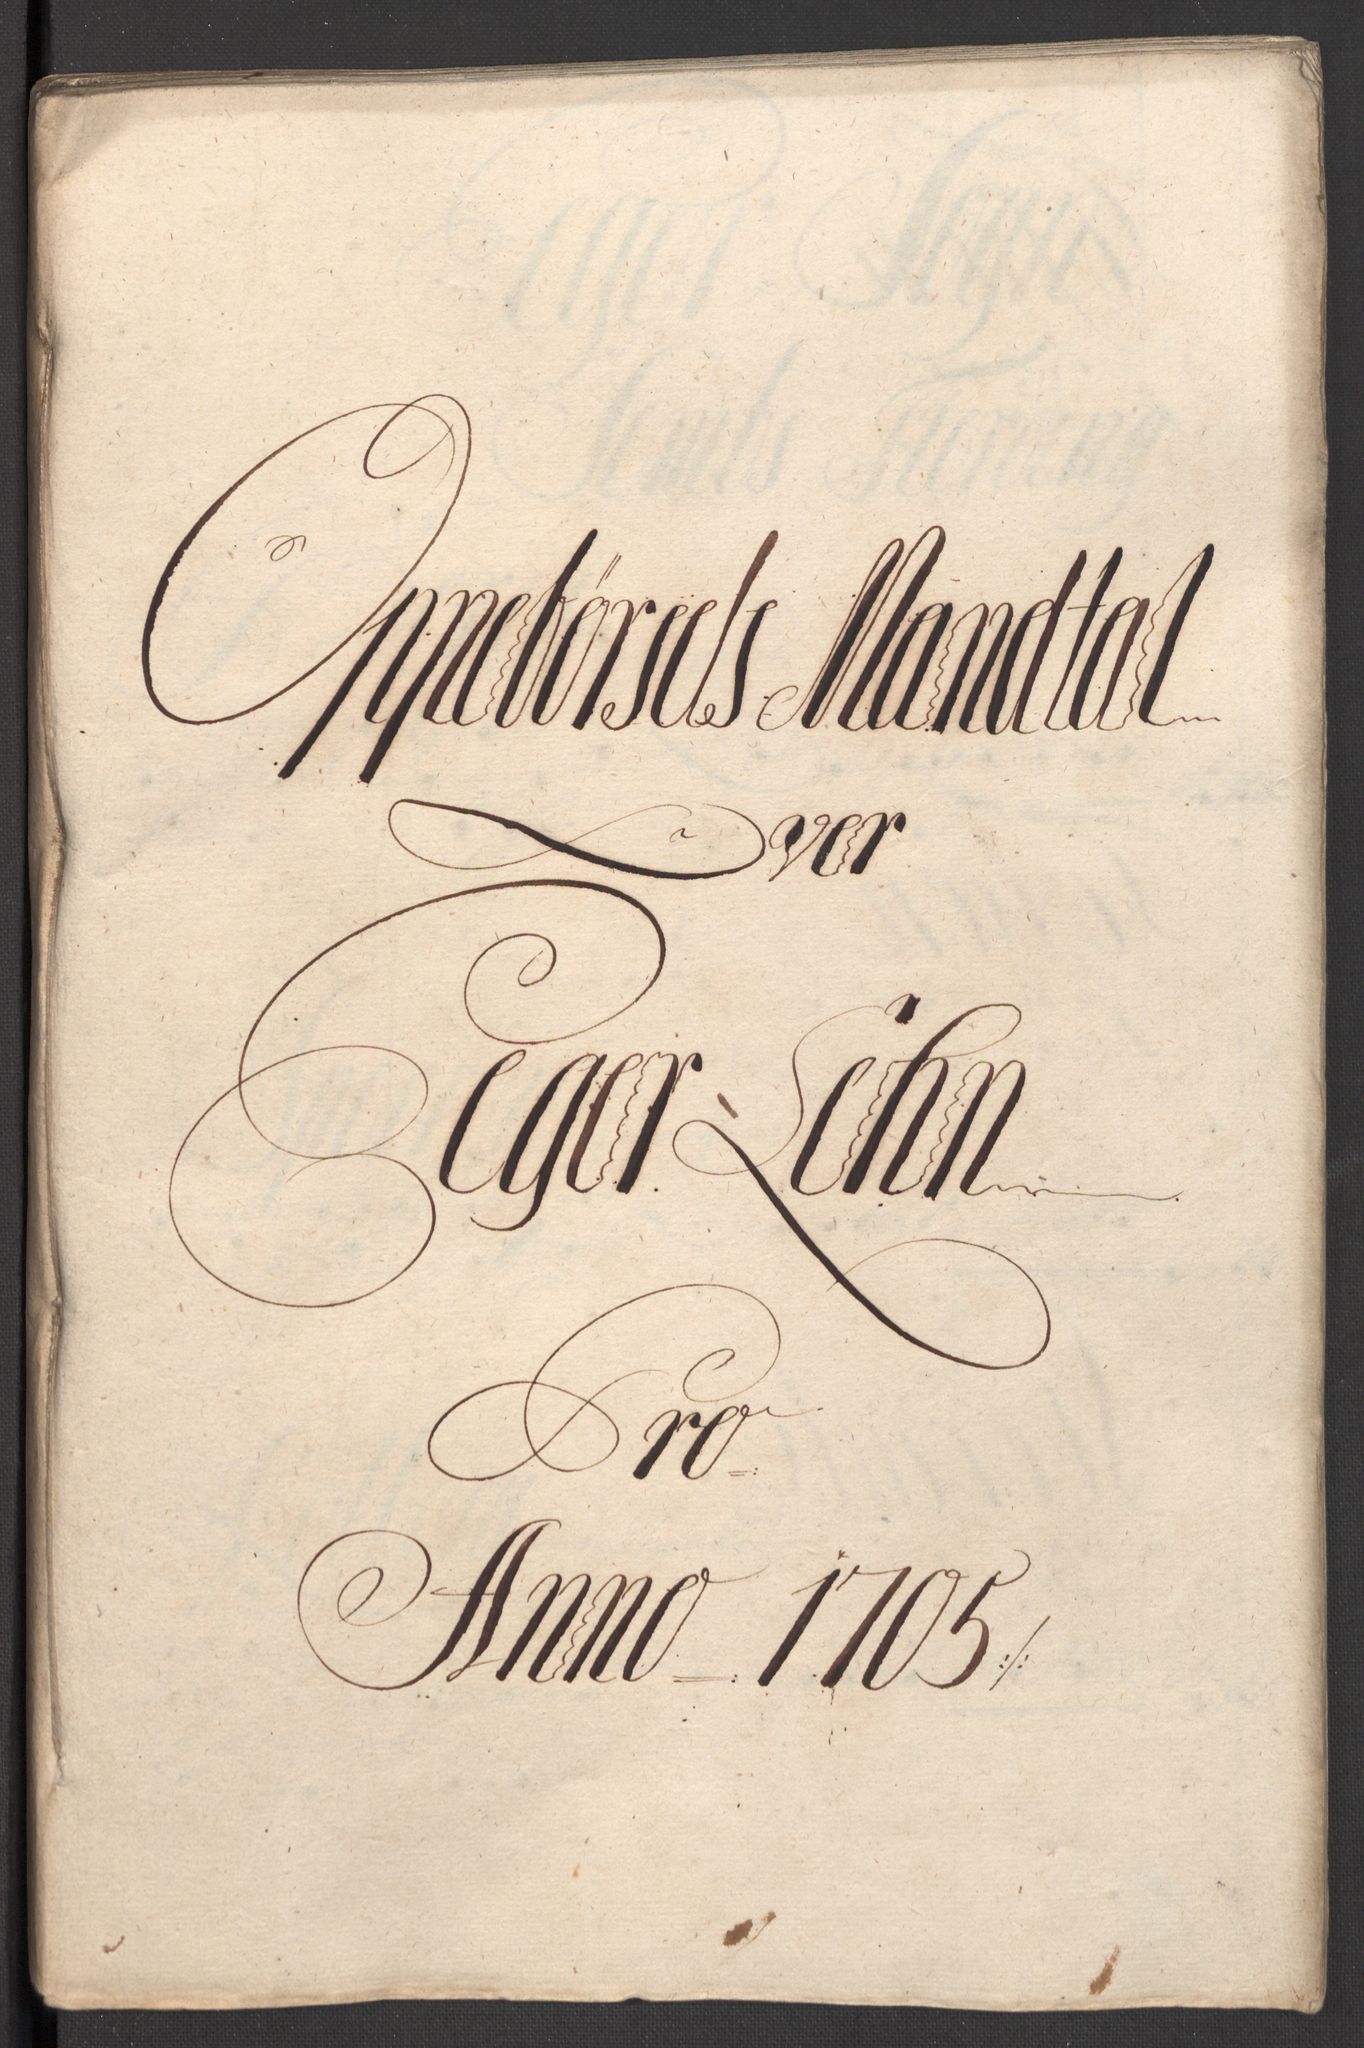 Oppebörsels Mandtal
Over
Eger Lehn
Pro
Anno 1705